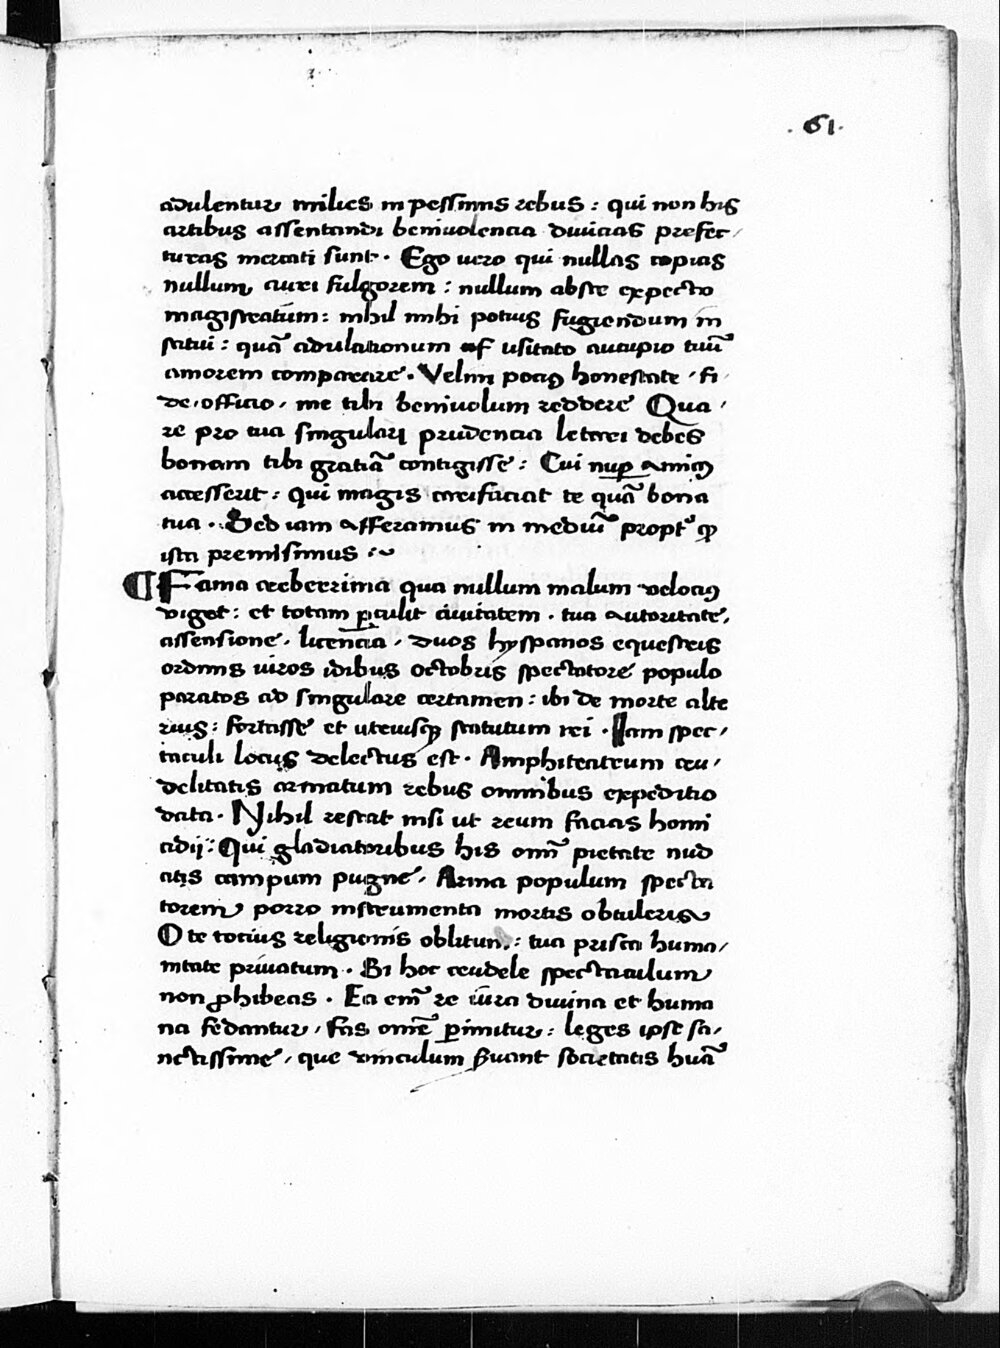 .61.
adulentur milies in pessimis rebus : qui non his
artibus assentandi beniuolencia diuicias prefec,
turas mercati sunt . Ego vero qui nullas copias
nullum auri fulgorem : nullum abste expecto
magistratum : nihil mihi potius fugiendum in
statui : quā adulationum usitato aucupio tuū
amorem comparare . Velim pociꝰ honestate , fi,
de , officio , me tibi beniuolum reddere Qua,
re pro tua singulari prudencia letari debes
bonam tibi gratiā contigisse : Cui nuꝑ amicꝰ
accesserit : qui magis carifaciat te quā bona
tua . Sed iam afferamus in mediū proptʳ qꝫ
ista premisimus :~
¶ Fama creberrima qua nullum malum velociꝰ
viget : et totam ꝑculit ciuitatem . tua autoritate,
assensione , licencia , duos hyspanos equestris
ordinis viros idibus octobris spectatore populo
paratos ad singulare certamen : ibi de morte alte
rius : fortasse et utriusqꝫ statutum rei . Iam spec,
taculi locus delectus est . Amphiteatrum cru,
delitatis armatum rebus omnibus expeditio
data . Nihil restat nisi ut reum facias homi
cidij : Qui gladiatoribus his omī pietate nud
atis campum pugne , Arma populum specta
torem porro instrumenta mortis obtuleris
O te totius religionis oblitum : tua prisca huma,
nitate priuatum . Si hoc crudele spectaculum
non ꝓhibeas . Ea em̄ re iura diuina et huma
na fedantur , fas omē ꝑimitur : leges ipse sa,
nctissime , que vinculum ẜuant societatis huā